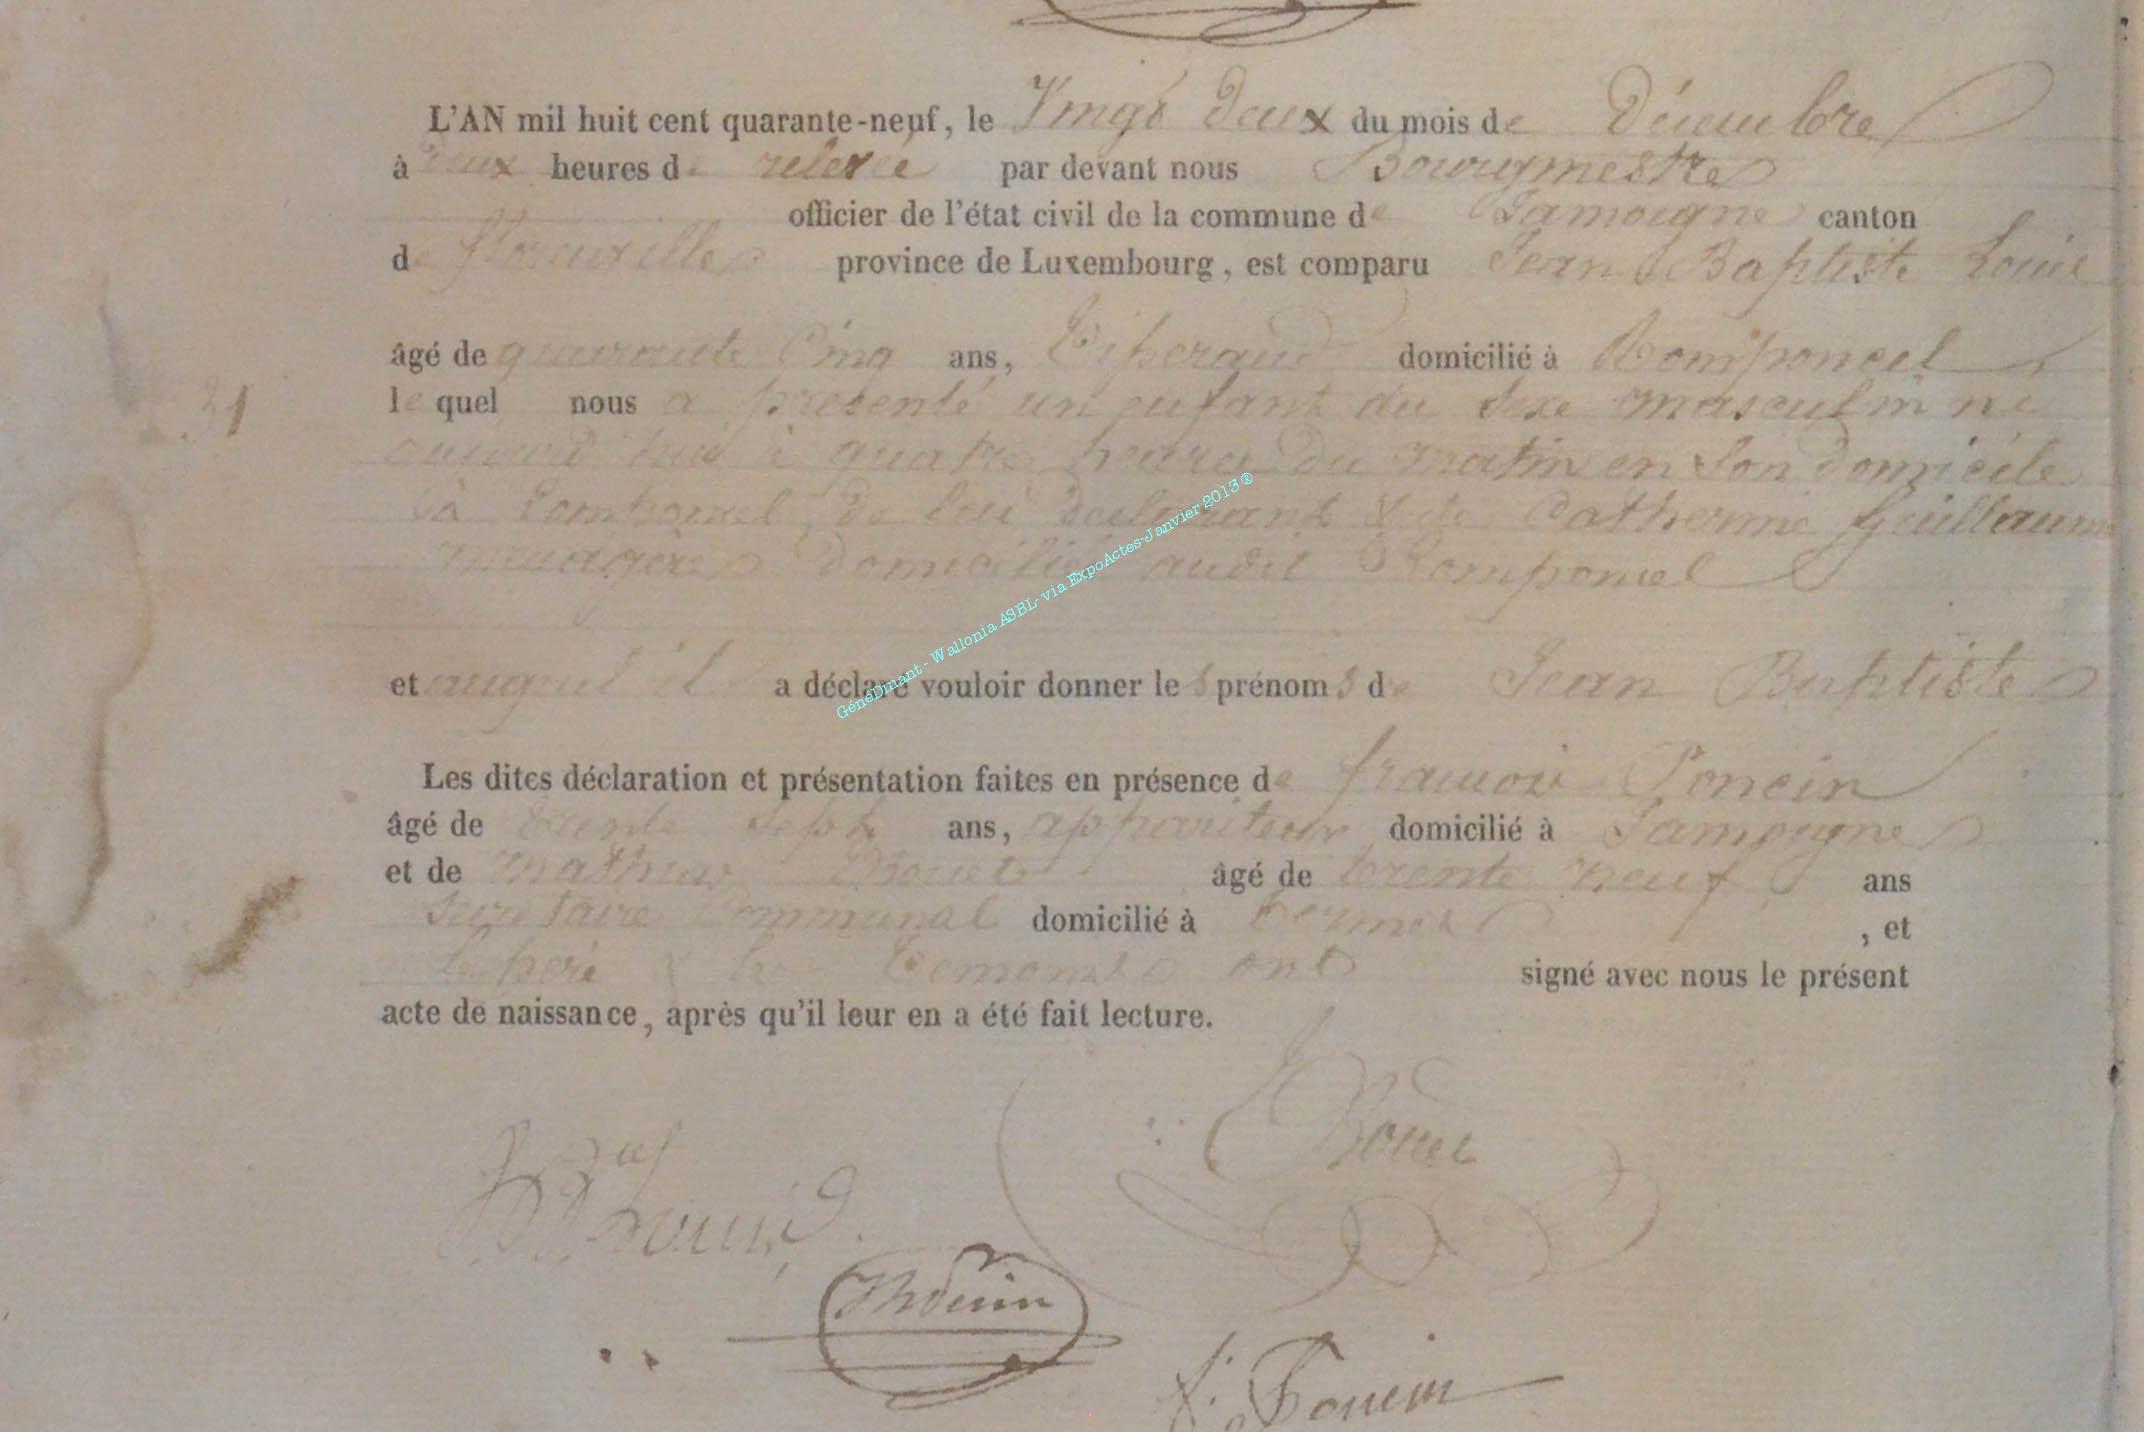 L'AN mil huit cent quarante-neuf, le Vingt deux du mois de Décembre
à deux heures de relevée par devant nous Bourgmestre
officier de l'état civil de la commune de Jamoigne canton
de florenville province de Luxembourg, est comparu Jean Baptiste Louis
âgé de quarante Cinq ans, domicilié à Romponcel
lequel nous a presenté un enfant du sexe masculin né
aujourd'hui à quatre heures du matin en Son domicile
à Romponcel, de lui declarant & de Catherine Guillaume
menagère domiciliée audit Romponcel
et auquel il a déclaré vouloir donner les prénoms de Jean Baptiste
Les dites déclaration et présentation faites en présence de françois Poncin
âgé de trente Sept ans, appariteur domicilié à Jamoigne
et de mathieu âgé de trente neuf ans
Secretaire Communal domicilié à termes, et
le père & les temoins ont signé avec nous le présent
acte de naissance, après qu'il leur en a été fait lecture.
21
Louis
F. Poncin
GénéDinant - Wallonia ASBL- via ExpoActes-Janvier 2013®